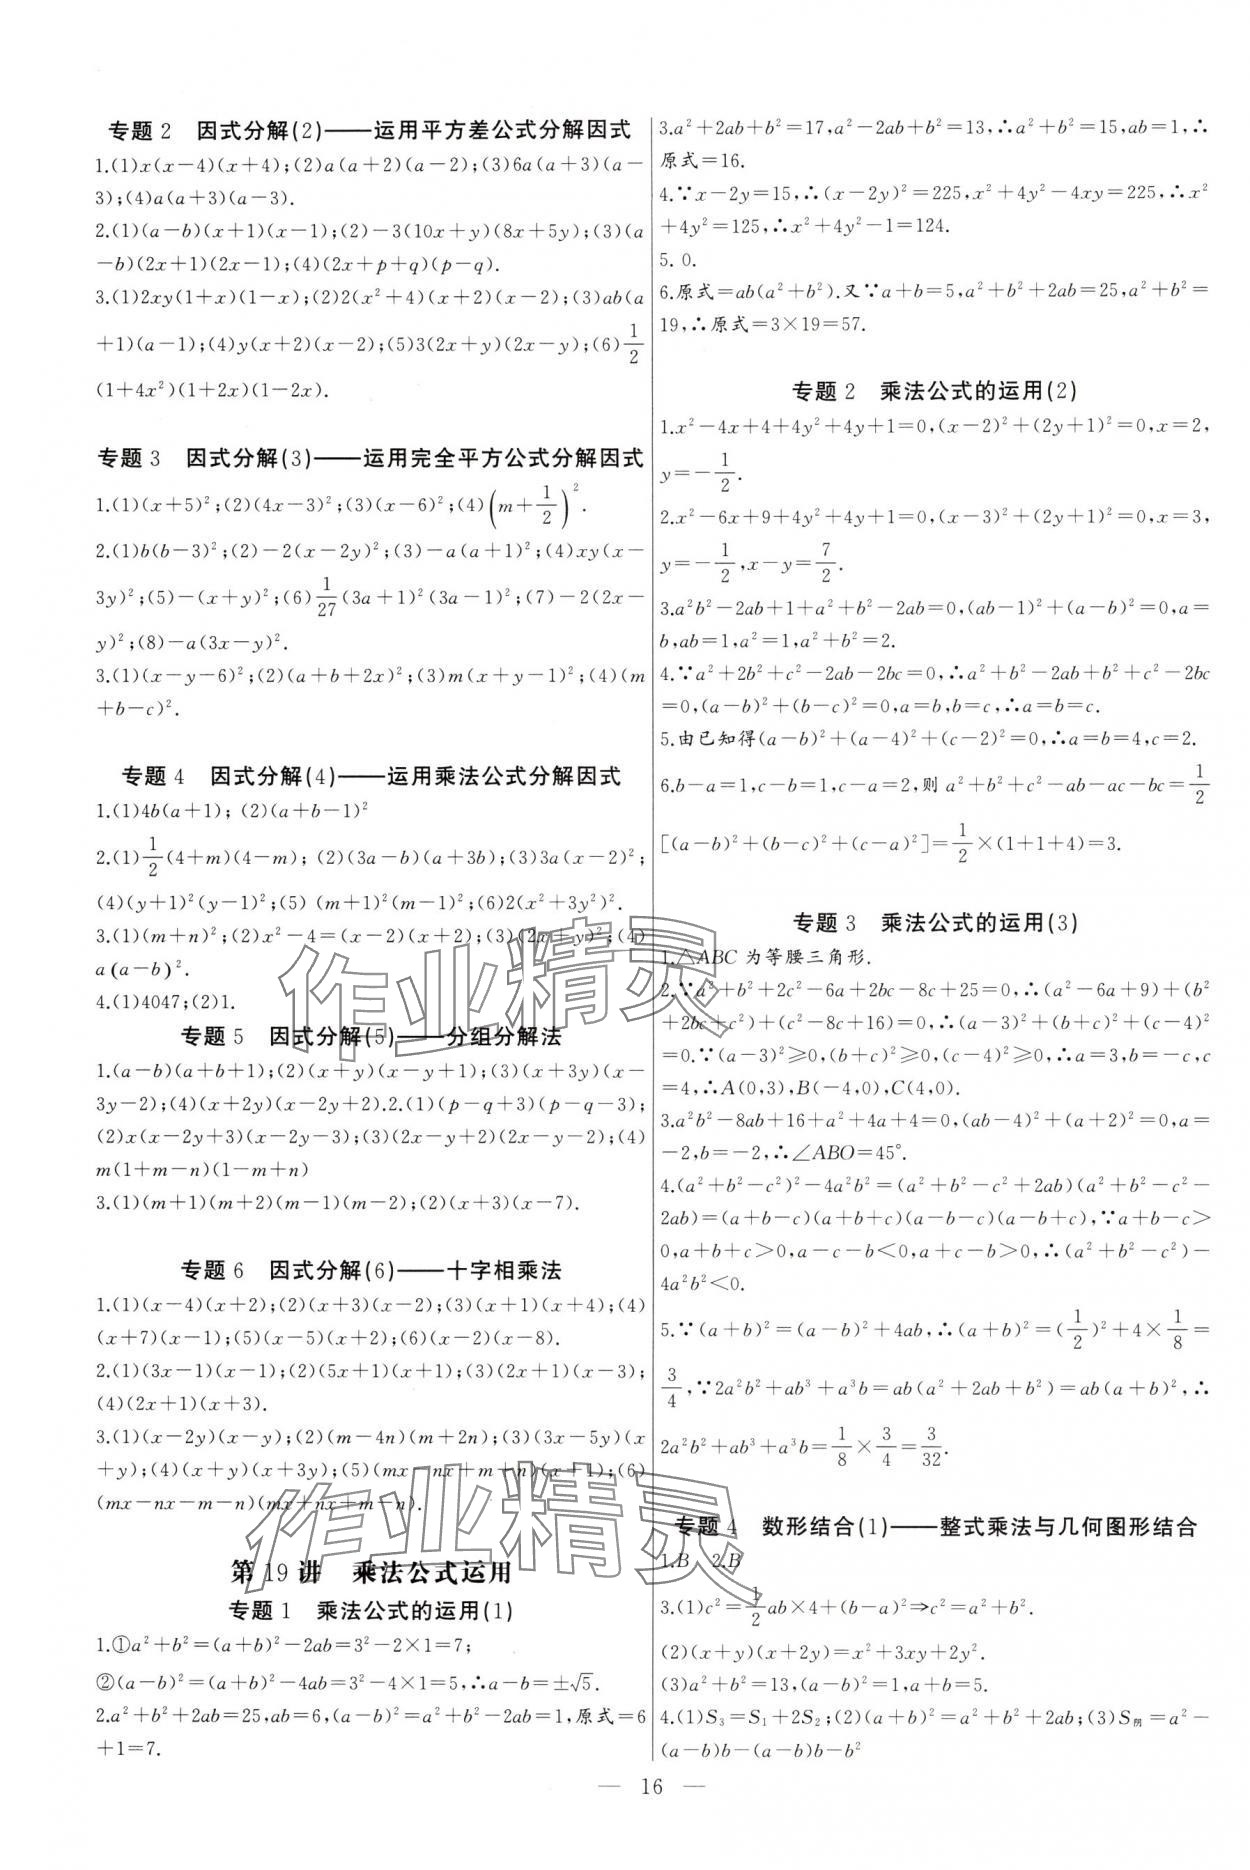 专题2 因式分解(2)——运用平方差公式分解因式
1.(1)x(x−4)(x+4);(2)a(a+2)(a−2);(3)6a(a+3)(a−
3);(4)a(a+3)(a−3).
2.(1)(a−b)(x+1)(x−1);(2)−3(10x+y)(8x+5y);(3)(a
−b)(2x+1)(2x−1);(4)(2x+p+q)(p−q).
3.(1)2xy(1+x)(1−x);(2)2(x²+4)(x+2)(x−2);(3)ab(a
+1)(a−1);(4)y(x+2)(x−2);(5)3(2x+y)(2x−y);(6)1/2
(1+4x²)(1+2x)(1−2x).
专题3 因式分解(3)——运用完全平方公式分解因式
1.(1)(x+5)²;(2)(4x−3)²;(3)(x−6)²;(4)(m+1/2)².
2.(1)b(b−3)²;(2)−2(x−2y)²;(3)−a(a+1)²;(4)xy(x−
3y)²;(5)−(x+y)²;(6)1/27(3a+1)²(3a−1)²;(7)−2(2x−
y)²;(8)−a(3x−y)².
3.(1)(x−y−6)²;(2)(a+b+2x)²;(3)m(x+y−1)²;(4)(m
+b−c)².
专题4 因式分解(4)——运用乘法公式分解因式
1.(1)4b(a+1); (2)(a+b−1)²
2.(1)1/2(4+m)(4−m); (2)(3a−b)(a+3b);(3)3a(x−2)²;
(4)(y+1)²(y−1)²;(5) (m+1)²(m−1)²;(6)2(x²+3y²)².
3.(1)(m+n)²;(2)x²−4=(x−2)(x+2);(3)(2x+y)²;(4)
a(a−b)².
4.(1)4047;(2)1.
专题5 因式分解(5)——分组分解法
1.(a−b)(a+b+1);(2)(x+y)(x−y+1);(3)(x+3y)(x−
3y−2);(4)(x+2y)(x−2y+2).2.(1)(p−q+3)(p−q−3);
(2)x(x−2y+3)(x−2y−3);(3)(2x−y+2)(2x−y−2);(4)
m(1+m−n)(1−m+n)
3.(1)(m+1)(m+2)(m−1)(m−2);(2)(x+3)(x−7).
专题6 因式分解(6)——十字相乘法
1.(1)(x−4)(x+2);(2)(x+3)(x−2);(3)(x+1)(x+4);(4)
(x+7)(x−1);(5)(x−5)(x+2);(6)(x−2)(x−8).
2.(1)(3x−1)(x−1);(2)(5x+1)(x+1);(3)(2x+1)(x−3);
(4)(2x+1)(x+3).
3.(1)(x−2y)(x−y);(2)(m−4n)(m+2n);(3)(3x−5y)(x
+y);(4)(x+y)(x+3y);(5)(mx−nx+m+n)(x+1);(6)
(mx−nx−m−n)(mx+nx+m−n).
第19讲 乘法公式运用
专题1 乘法公式的运用(1)
1.①a²+b²=(a+b)²−2ab=3²−2×1=7;
②(a−b)²=(a+b)²−4ab=3²−4×1=5,∴a−b=±√5.
2.a²+b²+2ab=25,ab=6,(a−b)²=a²+b²−2ab=1,原式=6
+1=7.
3.a²+2ab+b²=17,a²−2ab+b²=13,∴a²+b²=15,ab=1,∴
原式=16.
4.∵x−2y=15,∴(x−2y)²=225,x²+4y²−4xy=225,∴x²
+4y²=125,∴x²+4y²−1=124.
5. 0.
6.原式=ab(a²+b²).又∵a+b=5,a²+b²+2ab=25,a²+b²=
19,∴原式=3×19=57.
专题2 乘法公式的运用(2)
1.x²−4x+4+4y²+4y+1=0,(x−2)²+(2y+1)²=0,x=2,
y=−1/2.
2.x²−6x+9+4y²+4y+1=0,(x−3)²+(2y+1)²=0,x=3,
y=−1/2,x−y=7/2.
3.a²b²−2ab+1+a²+b²−2ab=0,(ab−1)²+(a−b)²=0,a=
b,ab=1,a²=1,a²+b²=2.
4.∵a²+2b²+c²−2ab−2bc=0,∴a²+b²−2ab+b²+c²−2bc
=0,(a−b)²+(b−c)²=0,a=b,b=c,∴a=b=c.
5.由已知得(a−b)²+(a−4)²+(c−2)²=0,∴a=b=4,c=2.
6.b−a=1,c−b=1,c−a=2,则 a²+b²+c²−ab−ac−bc=1/2
[(a−b)²+(b−c)²+(c−a)²]=1/2×(1+1+4)=3.
专题3 乘法公式的运用(3)
1.△ABC 为等腰三角形.
2.∵a²+b²+2c²−6a+2bc−8c+25=0,∴(a²−6a+9)+(b²
+2bc+c²)+(c²−8c+16)=0,∴(a−3)²+(b+c)²+(c−4)²
=0.∵(a−3)²≥0,(b+c)²≥0,(c−4)²≥0,∴a=3,b=−c,c
=4,∴A(0,3),B(−4,0),C(4,0).
3.a²b²−8ab+16+a²+4a+4=0,(ab−4)²+(a+2)²=0,a=
−2,b=−2,∴∠ABO=45°.
4.(a²+b²−c²)²−4a²b²=(a²+b²−c²+2ab)(a²+b²−c²−
2ab)=(a+b−c)(a+b+c)(a−b−c)(a−b+c),∵a+b−c>
0,a+b+c>0,a−c−b<0,a+c−b>0,∴(a²+b²−c²)−
4a²b²<0.
5.∵(a+b)²=(a−b)²+4ab,∴(a+b)²=(1/2)²+4×1/8=
3/4,∵2a²b²+ab³+a³b=ab(a²+2ab+b²)=ab(a+b)²,∴
2a²b²+ab³+a³b=1/8×3/4=3/32.
专题4 数形结合(1)——整式乘法与几何图形结合
1.B 2.B
3.(1)c²=1/2ab×4+(b−a)²⇒c²=a²+b².
(2)(x+y)(x+2y)=x²+3xy+2y².
(3)a²+b²=13,(a−b)²=1,a+b=5.
4.(1)S₃=S₁+2S₂;(2)(a+b)²=a²+b²+2ab;(3)S阴=a²−
(a−b)b−(a−b)b−b²
— 16 —
作业精灵
作业精灵